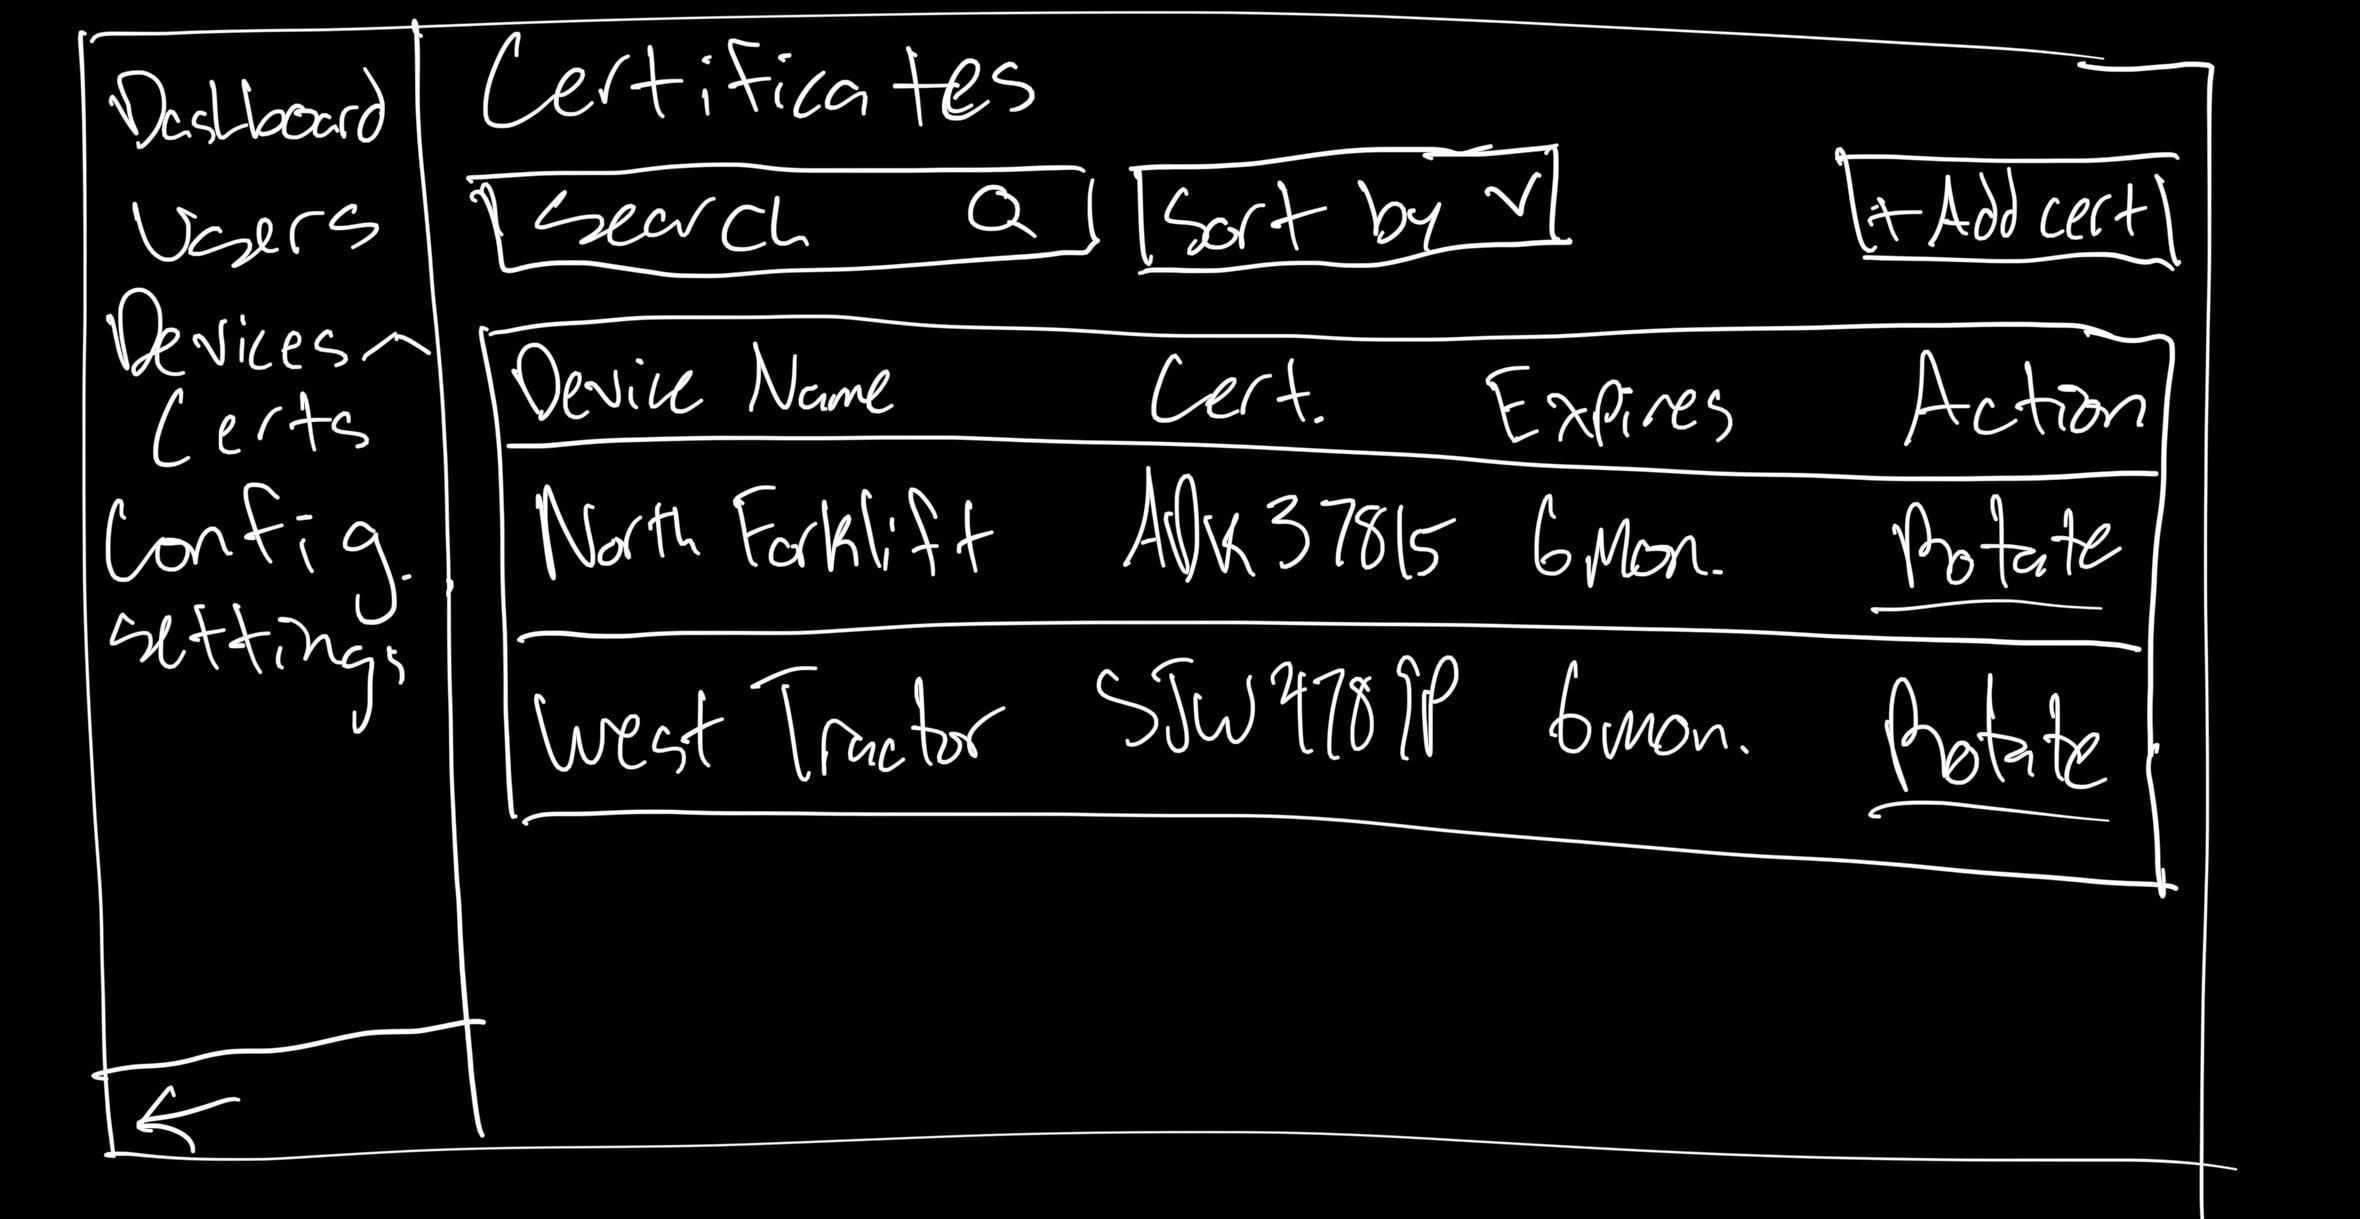 Dashboard
Users
Devices
Certs
Config.
Settings
Certificates
Search
Sort by
+ Add cert
Device Name Cert. Expires Action
North Forklift 6 Mon. Rotate
West Tractor 6 mon. Rotate